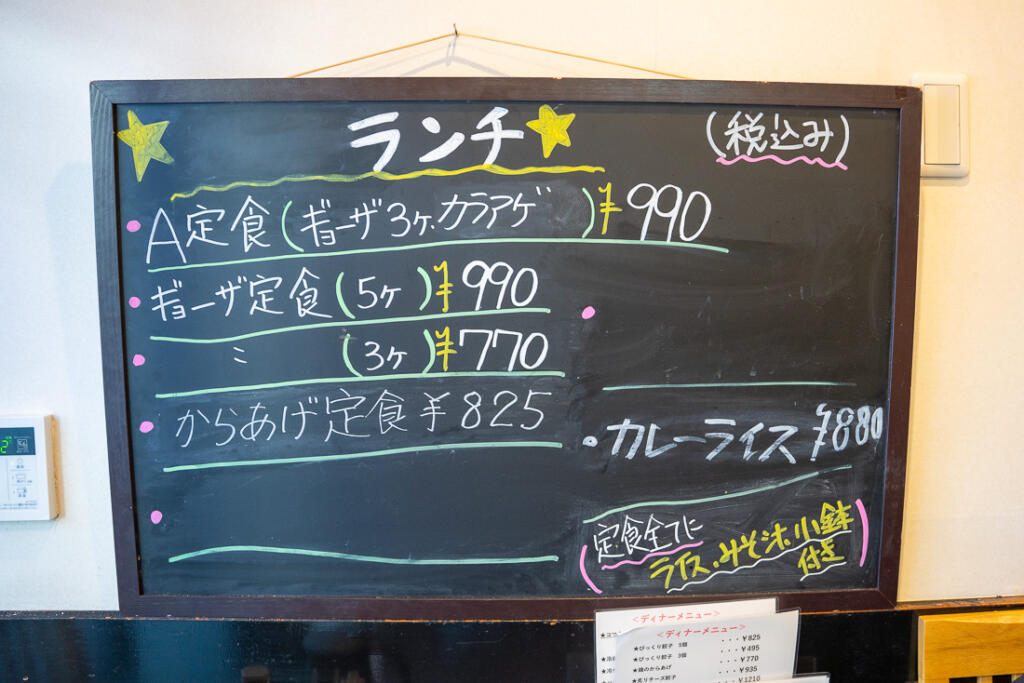 ランチ
(税込み)
A定食(ギョーザ3ヶ.カラアゲ)¥990
ギョーザ定食(5ヶ)¥990
〃(3ヶ)¥770
からあげ定食¥825
カレーライス¥880
(定食全てに
ライス.みそ汁.小鉢
付き)
<ディナーメニュー>
<ディナーメニュー>
★びっくり餃子 5個 ・・・¥825
★びっくり餃子 3個 ・・・¥495
★鶏のからあげ ・・・¥770
★炙りチーズ餃子 ・・・¥935
¥1210